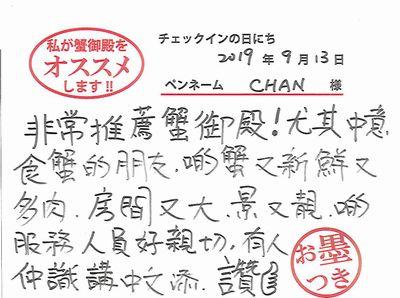 私が蟹御殿を
オススメ
します!!
チェックインの日にち
2019 年 9 月 13 日
ペンネーム CHAN 様
非常推薦蟹御殿!尤其中意
食蟹的朋友,啲蟹又新鮮又
多肉.房間又大.景又靚.啲
服務人員好親切,有人
仲識講中文添.讚
お墨
つき